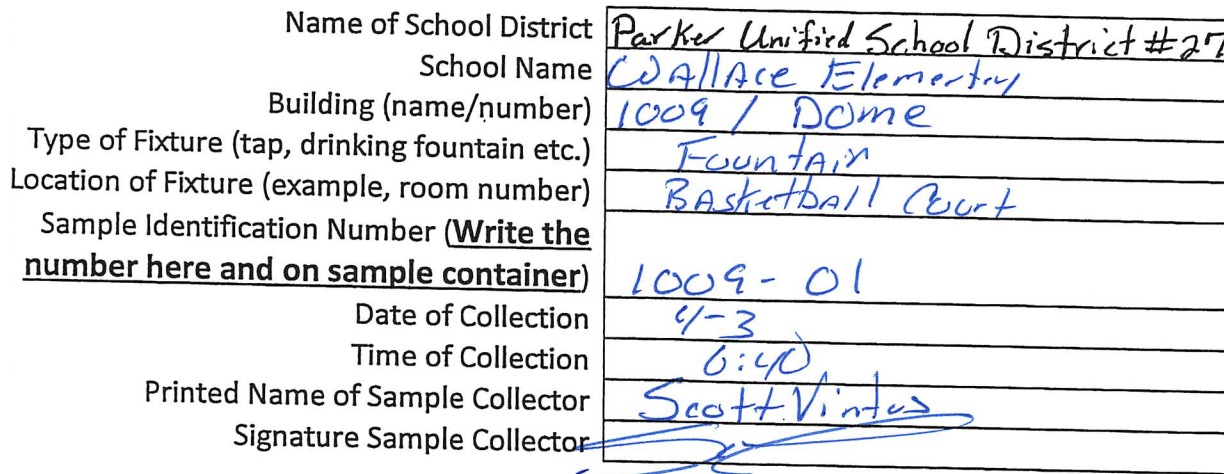 Name of School District Parker Unified School District #27
School Name WAllAce Elementry
Building (name/number) 1009 / Dome
Type of Fixture (tap, drinking fountain etc.) FountAin
Location of Fixture (example, room number) BAsketbAll Court
Sample Identification Number (Write the
number here and on sample container) 1009-01
Date of Collection 4-3
Time of Collection 6:40
Printed Name of Sample Collector Scott
Signature Sample Collector